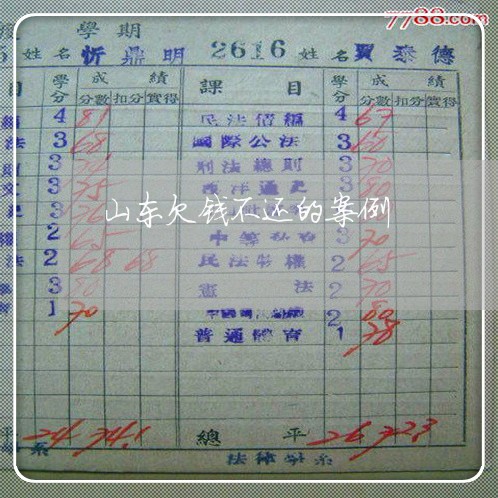 7788.com
學期
姓名 忻鼎明 2616 姓名 賈泰德
目 學分 成績 課目 學分 成績
分數 扣分 實得 分數 扣分 實得
4 81 民法債編 4 67
法 3 68 國際公法 3 60
3 刑法總則 3 70
3 75 西洋通史 3 80
3
山东欠钱不还的案例
2 65 3 70
法 2 68 68 民法物權 2 65
3 80 憲法 2 70
1 70 2 80
普通體育 1 78
平 24 74.1 總平 26 72.3
系 法律學系